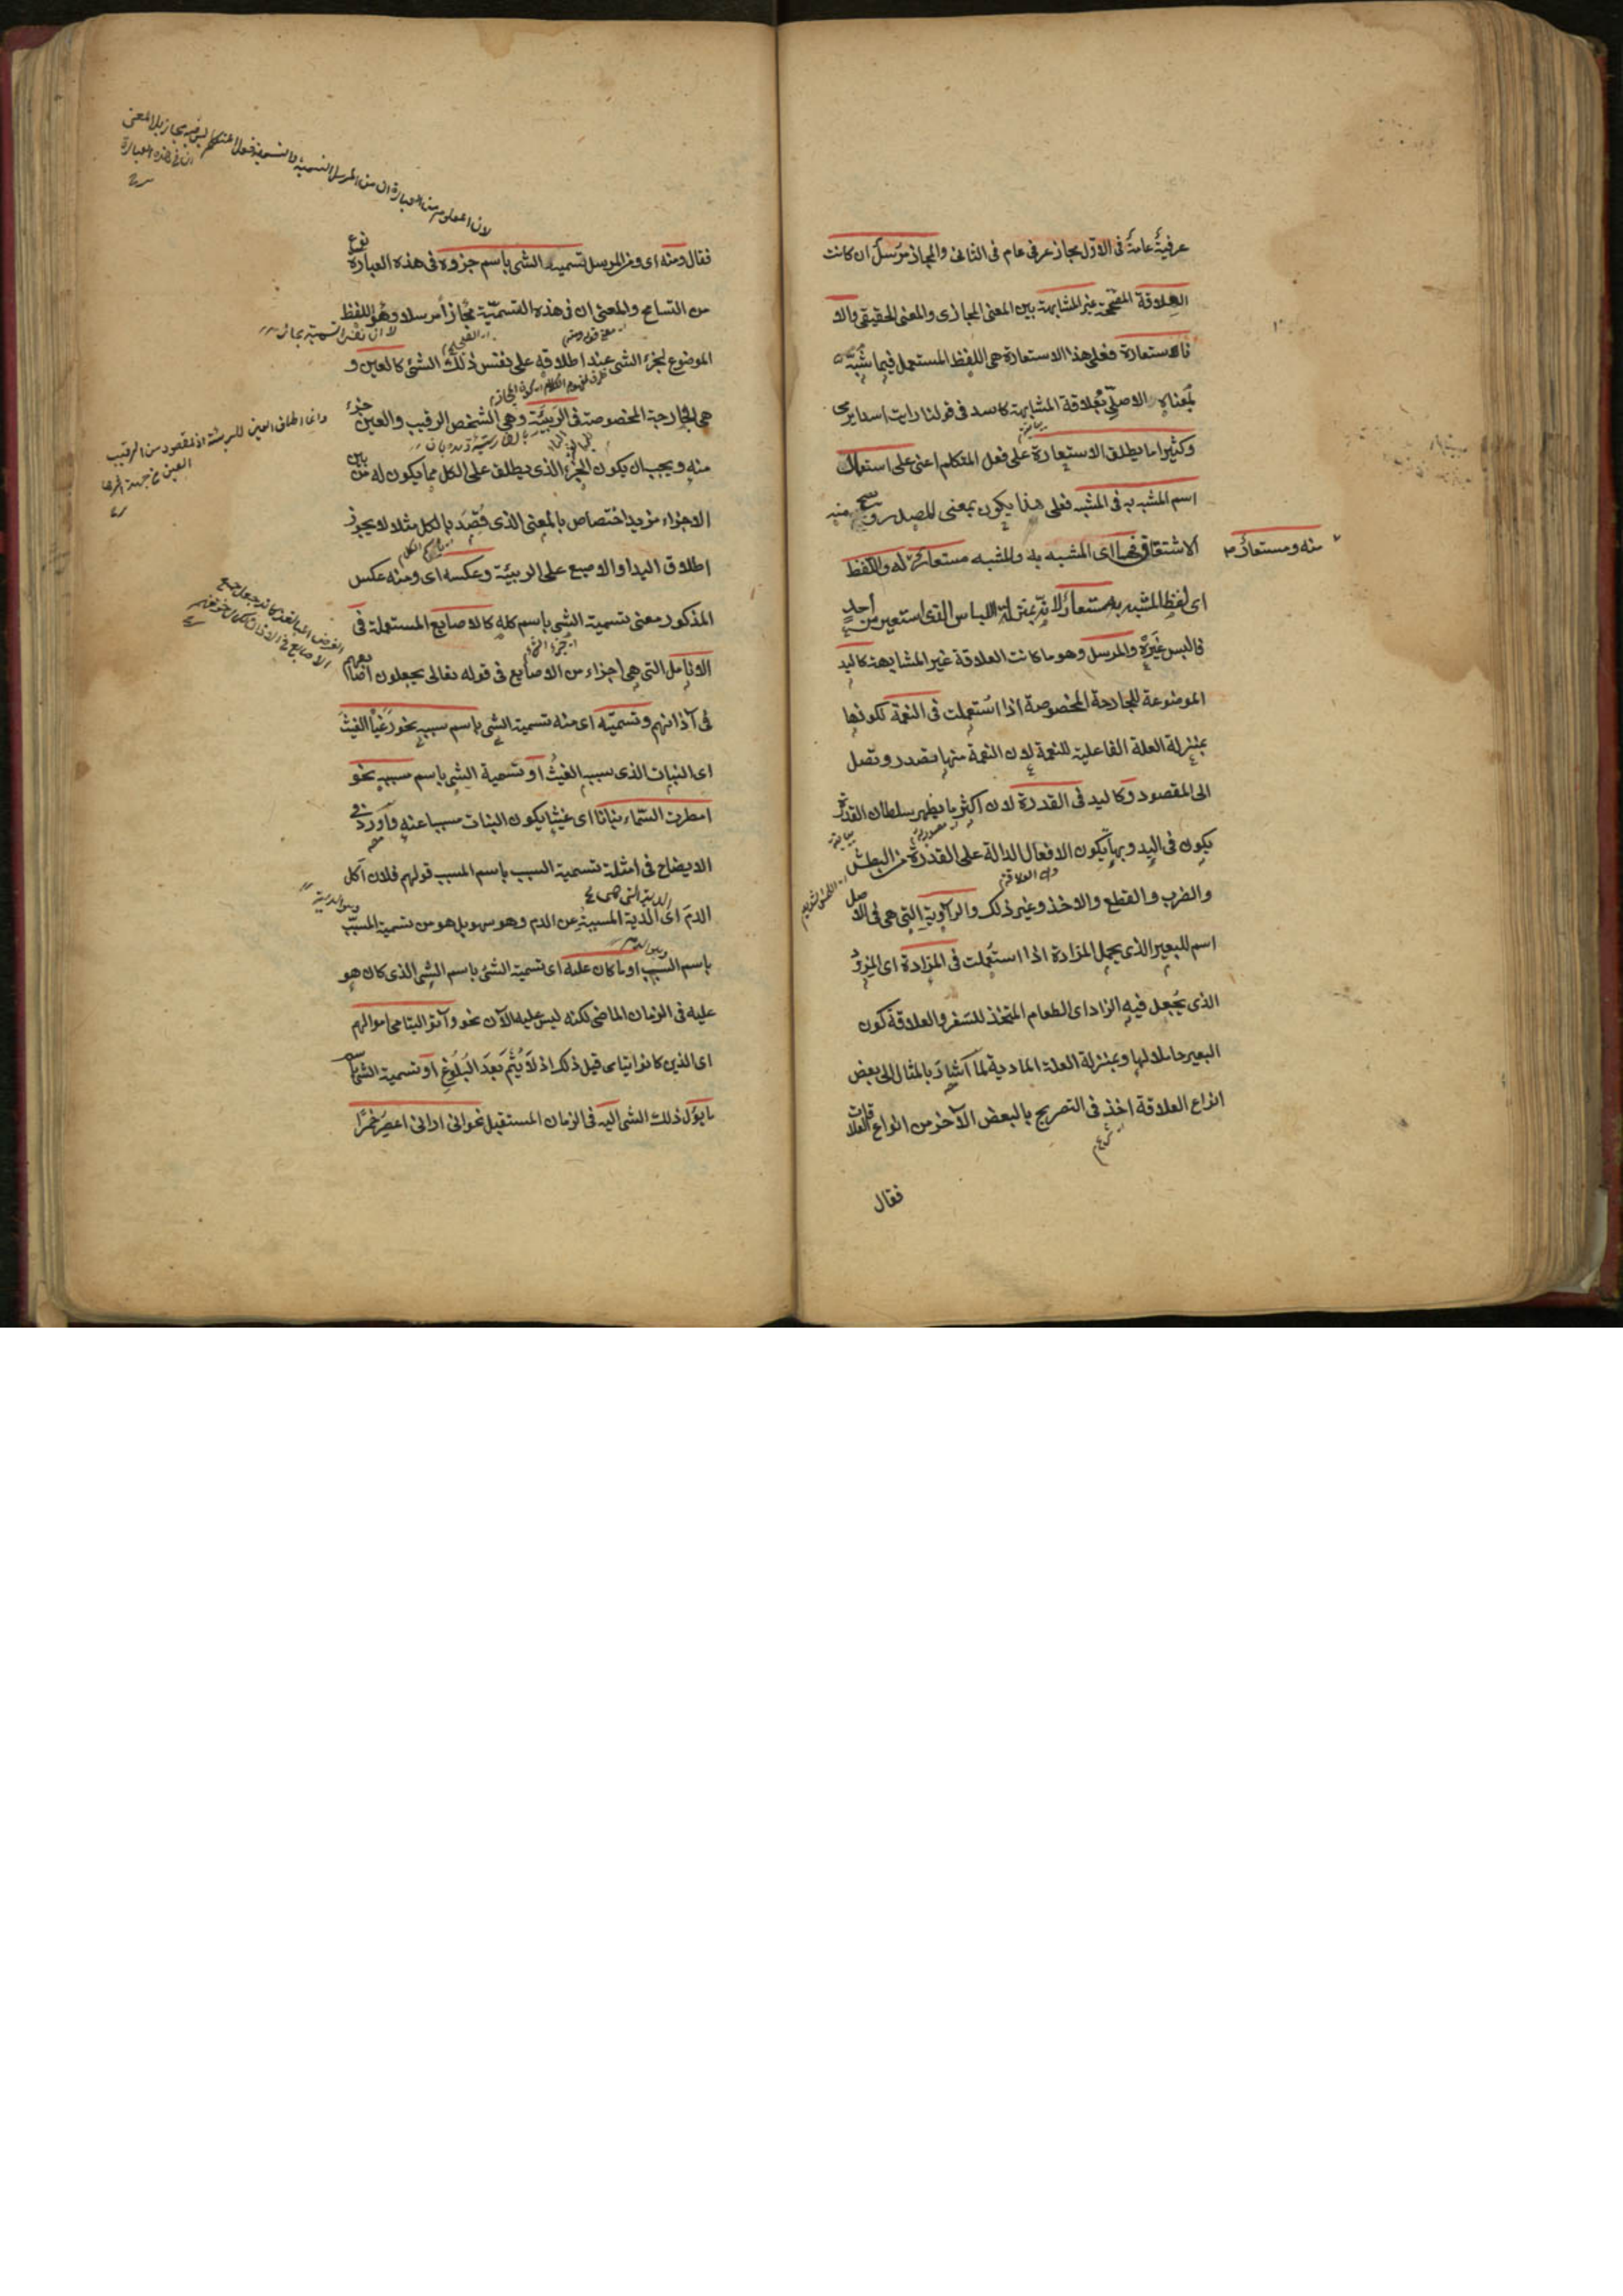 عرفية عامة في الاول مجاز عرفي عام في الثاني والمجاز مرسل ان كانت
العلاقة المصححة غير المشابهة بين المعنى المجازي والمعنى الحقيقي والا
فاستعارة فعلى هذا الاستعارة هي اللفظ المستعمل فيما شبه
بمعناه الاصلي بعلاقة المشابهة كاسد في قولنا رايت اسدا يرمي
وكثيرا ما يطلق الاستعارة على فعل المتكلم اعني على استعمال
اسم المشبه به في المشبه فعلى هذا يكون بمعنى المصدر ويصح منه
الاشتقاق فهما اى المشبه به والمشبه مستعار منه ومستعار له واللفظ
اى لفظ المشبه به مستعار لانه بمنزلة اللباس الذي استعير من احد
فالبس غيره والمرسل وهو ما كانت العلاقة غير المشابهة كاليد
الموضوعة للجارحة المخصوصة اذا استعملت في النعمة لكونها
بمنزلة العلة الفاعلية للنعمة لان النعمة منها تصدر وتصل
الى المقصود وكاليد في القدرة لان اكثر ما يظهر سلطان القدرة
يكون في اليد وبها يكون الافعال الدالة على القدرة من البطش
والضرب والقطع والاخذ وغير ذلك والراوية التي هي في الاصل
اسم للبعير الذي يحمل المزادة اذا استعملت في المزادة اى المزود
الذي يجعل فيه الزاد اى الطعام المتخذ للسفر والعلاقة كون
البعير حاملا لها وبمنزلة العلة المادية لما اشار بالمثال الى بعض
انواع العلاقة اخذ في التصريح بالبعض الآخر من انواع العلاقات
فقال
فقال ومنه اى ومن المرسل تسمية الشئ باسم جزوه في هذه العبارة نوع
من التسامح والمعنى ان في هذه التسمية مجازا مرسلا وهو اللفظ
الموضوع لجزء الشئ عند اطلاقه على نفس ذلك الشئ كالعين و
هي الجارحة المخصوصة في الربيئة وهي الشخص الرقيب والعين جزء
منه ويجب ان يكون الجزء الذي يطلق على الكل مما يكون له من بين
الاجزاء مزيد اختصاص بالمعنى الذي قصد بالكل مثلا لا يجوز
اطلاق اليد او الاصبع على الربيئة وعكسه اى ومنه عكس
المذكور معنى تسمية الشئ باسم كله كالاصابع المستعملة في
الانامل التي هي اجزاء من الاصابع في قوله تعالى يجعلون اصابعهم
في آذانهم وتسميته اى منه تسمية الشئ باسم سببه نحو رعينا الغيث
اى النبات الذي سببه الغيث او تسمية الشئ باسم مسببه نحو
امطرت السماء نباتا اى غيثا يكون النبات مسببا عنه واورد في
الايضاح في امثلة تسمية السبب باسم المسبب قولهم فلان آكل
الدم اى الدية المسببة عن الدم وهو سهو بل هو من تسمية المسبب
باسم السبب او ما كان عليه اى تسمية الشئ باسم الشئ الذي كان هو
عليه في الزمان الماضي لكنه ليس عليه الآن نحو وآتوا اليتامى اموالهم
اى الذين كانوا يتامى قبل ذلك اذ لا يتم بعد البلوغ او تسمية الشئ باسم
ما يؤل ذلك الشئ اليه في الزمان المستقبل نحو انى ارانى اعصر خمرا